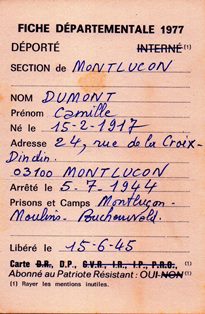 FICHE DÉPARTEMENTALE 1977
DÉPORTÉ INTERNÉ (1)
SECTION de MONTLUCON
NOM DUMONT
Prénom Camille
Né le 15-2-1917
Adresse 24, rue de la Croix-
Dindin.
03100 MONTLUCON
Arrêté le 5.7.1944
Prisons et Camps Montluçon-
Moulins. Buchenwald.
Libéré le 15-6-45
Carte D.R., D.P., C.V.R., I.R., I.P., P.R.O., (1)
Abonné au Patriote Résistant : OUI-NON (1)
(1) Rayer les mentions inutiles.